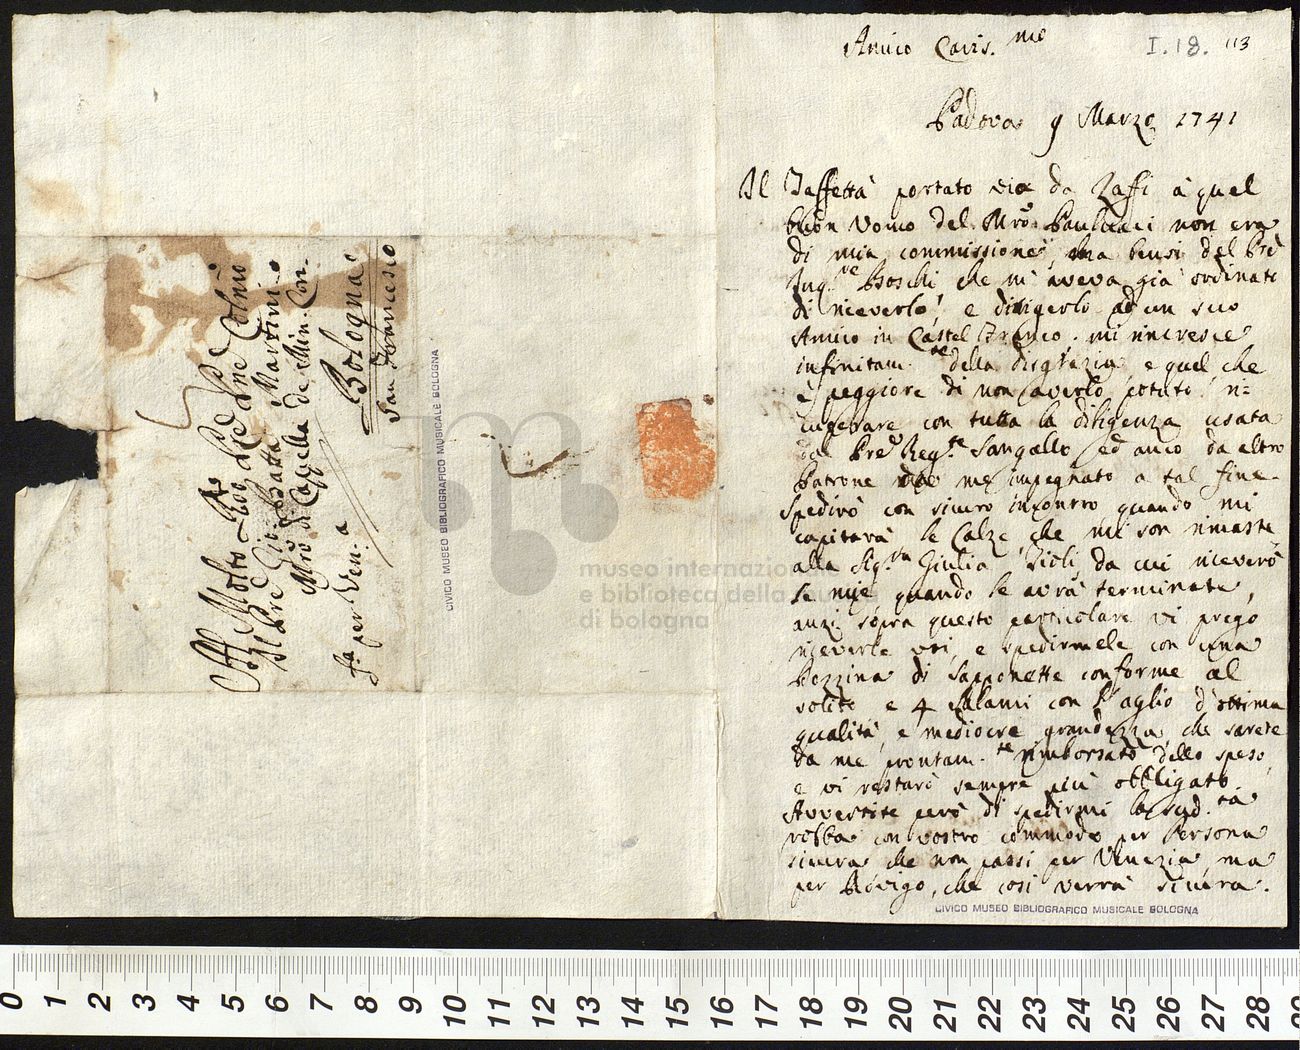 Amico Caris.me
I.18. 113
Padova 9 Marzo 1741
Il Taffettà portato via da Zaffi à quel
buon Uomo del Mro Paulucci non era
di mia commissione, ma bensi del Prè
Inq.re Boschi che m'aveva già ordinato
di riceverlo, e dirigerlo ad un suo
Amico in Castel Franco. mi rincresce
infinitam.te della disgrazia e quel che
è peggiore di non averlo potuto ri=
cuperare con tutta la diligenza usata
dal Pre Reg.te Sangallo ed anco da altro
Patrone da me impegnato a tal fine.
Spedirò con sicuro incontro quando mi
capitarà le Calze, che mi son rimaste
alla Sig.ra Giulia Tioli, da cui riceverò
le mie quando le avrà terminate,
anzi sopra questo particolare vi prego
riceverle voi, e spedirmele con una
Dozzina di Sapponette conforme al
solito e 4 Salami con l'aglio d'ottima
qualità, e mediocre grandezza, che sarete
da me prontam.te rimborsato dello speso,
e vi restarò sempre più obbligato.
Avvertite però di spedirmi la sud.ta
robba con vostro commodo per Persona
sicura che non passi per Venezia ma
per Rovigo, che così verrà sicura.
CIVICO MUSEO BIBLIOGRAFICO MUSICALE BOLOGNA
Al Molto Rdo Pre Pre Colmo
Il Pre Gio: Batta Martini
Mro di Cappella de Min. Con.
Bologna
San Francesco
Fa per Ven.a
CIVICO MUSEO BIBLIOGRAFICO MUSICALE BOLOGNA
museo internazionale
e biblioteca della musica
di bologna
0 1 2 3 4 5 6 7 8 9 10 11 12 13 14 15 16 17 18 19 20 21 22 23 24 25 26 27 28